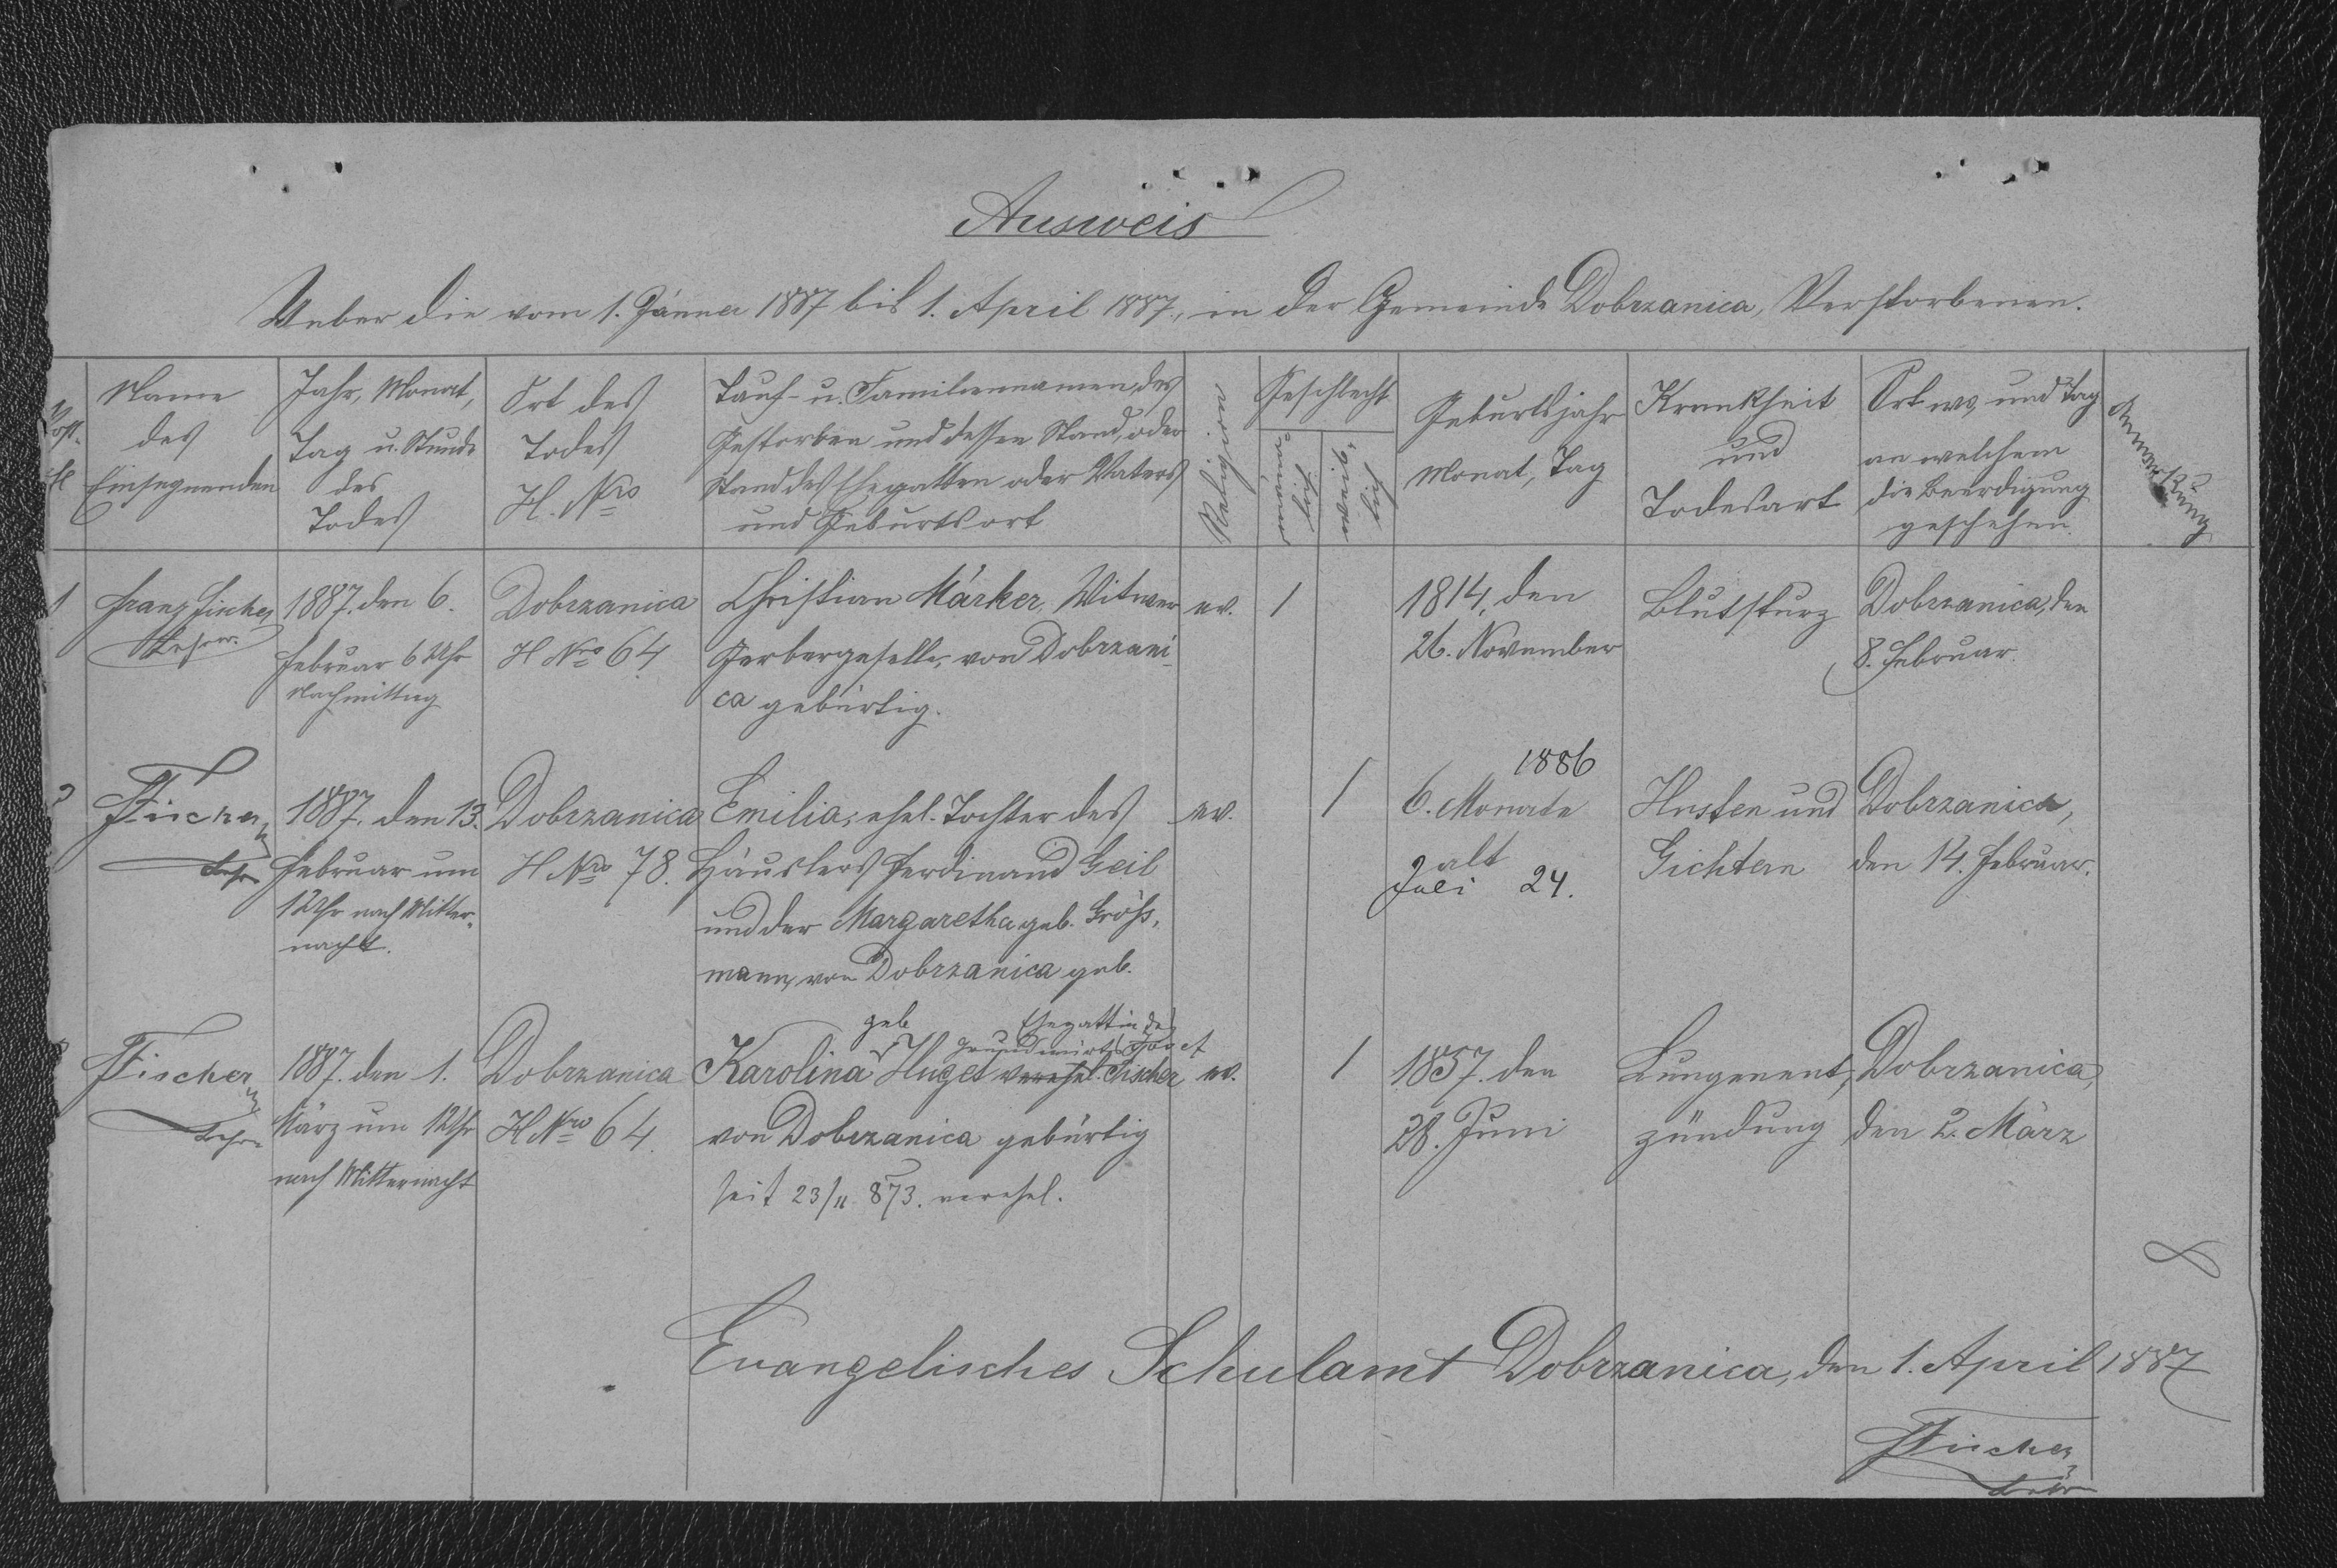 Ausweis
Ueber die vom 1. Jänner 1887 bis 1. April 1887, in der Gemeinde Dobrzanica, Verstorbenen.
Post-
Name
des
Einsegnenden
Jahr, Monat,
Tag u. Stunde
des
Todes
Ort des
Todes
H. Nro
Tauf- u. Familiennamen, des
Gestorben und dessen Stand, oder
Stand des Ehegatten oder Vaters
und Geburtsort
Religion
Geschlecht
Geburtsjahr
Monat, Tag
Krankheit
und
Todesart
Ort wo, und Tag
an welchem
die Beerdigung
geschehen.
Anmerkung
1
Franz Fischer
Lehrer
1887. den 6.
Februar 6 Uhr
Nachmittag
Dobrzanica
H Nro 64
Christian Märker, Witwer
Gerbergeselle, von Dobrzani-
ca gebürtig.
ev.
1
1814, den
26. November
Blutsturz
Dobrzanica, den
8. Februar.
2
Fischer
Lehrer
1887. den 13.
Februar um
1 Uhr nach Mitter-
nacht.
Dobrzanica
H Nro 78.
Emilia, ehel. Tochter des
Häuslers Ferdinand Geil
und der Margaretha geb. Größ-
mann, von Dobrzanica geb.
ev.
1
1886
6. Monate
alt
Juli 24.
Husten und
Gichtern
Dobrzanica,
den 14. Februar.
Fischer
Lehrer
1887. den 1.
März um 1 Uhr
nach Mitternacht
Dobrzanica
H Nro 64.
geb Ehegattin des
Grundwirts
Karolina Huget verehel. Fischer
von Dobrzanica gebürtig
seit 23/11 873. verehel.
ev.
1
1857. den
28. Juni
Lungenent-
zündung
Dobrzanica,
den 2. März
Evangelisches Schulamt Dobrzanica, den 1. April 1887
Fischer
Lehrer